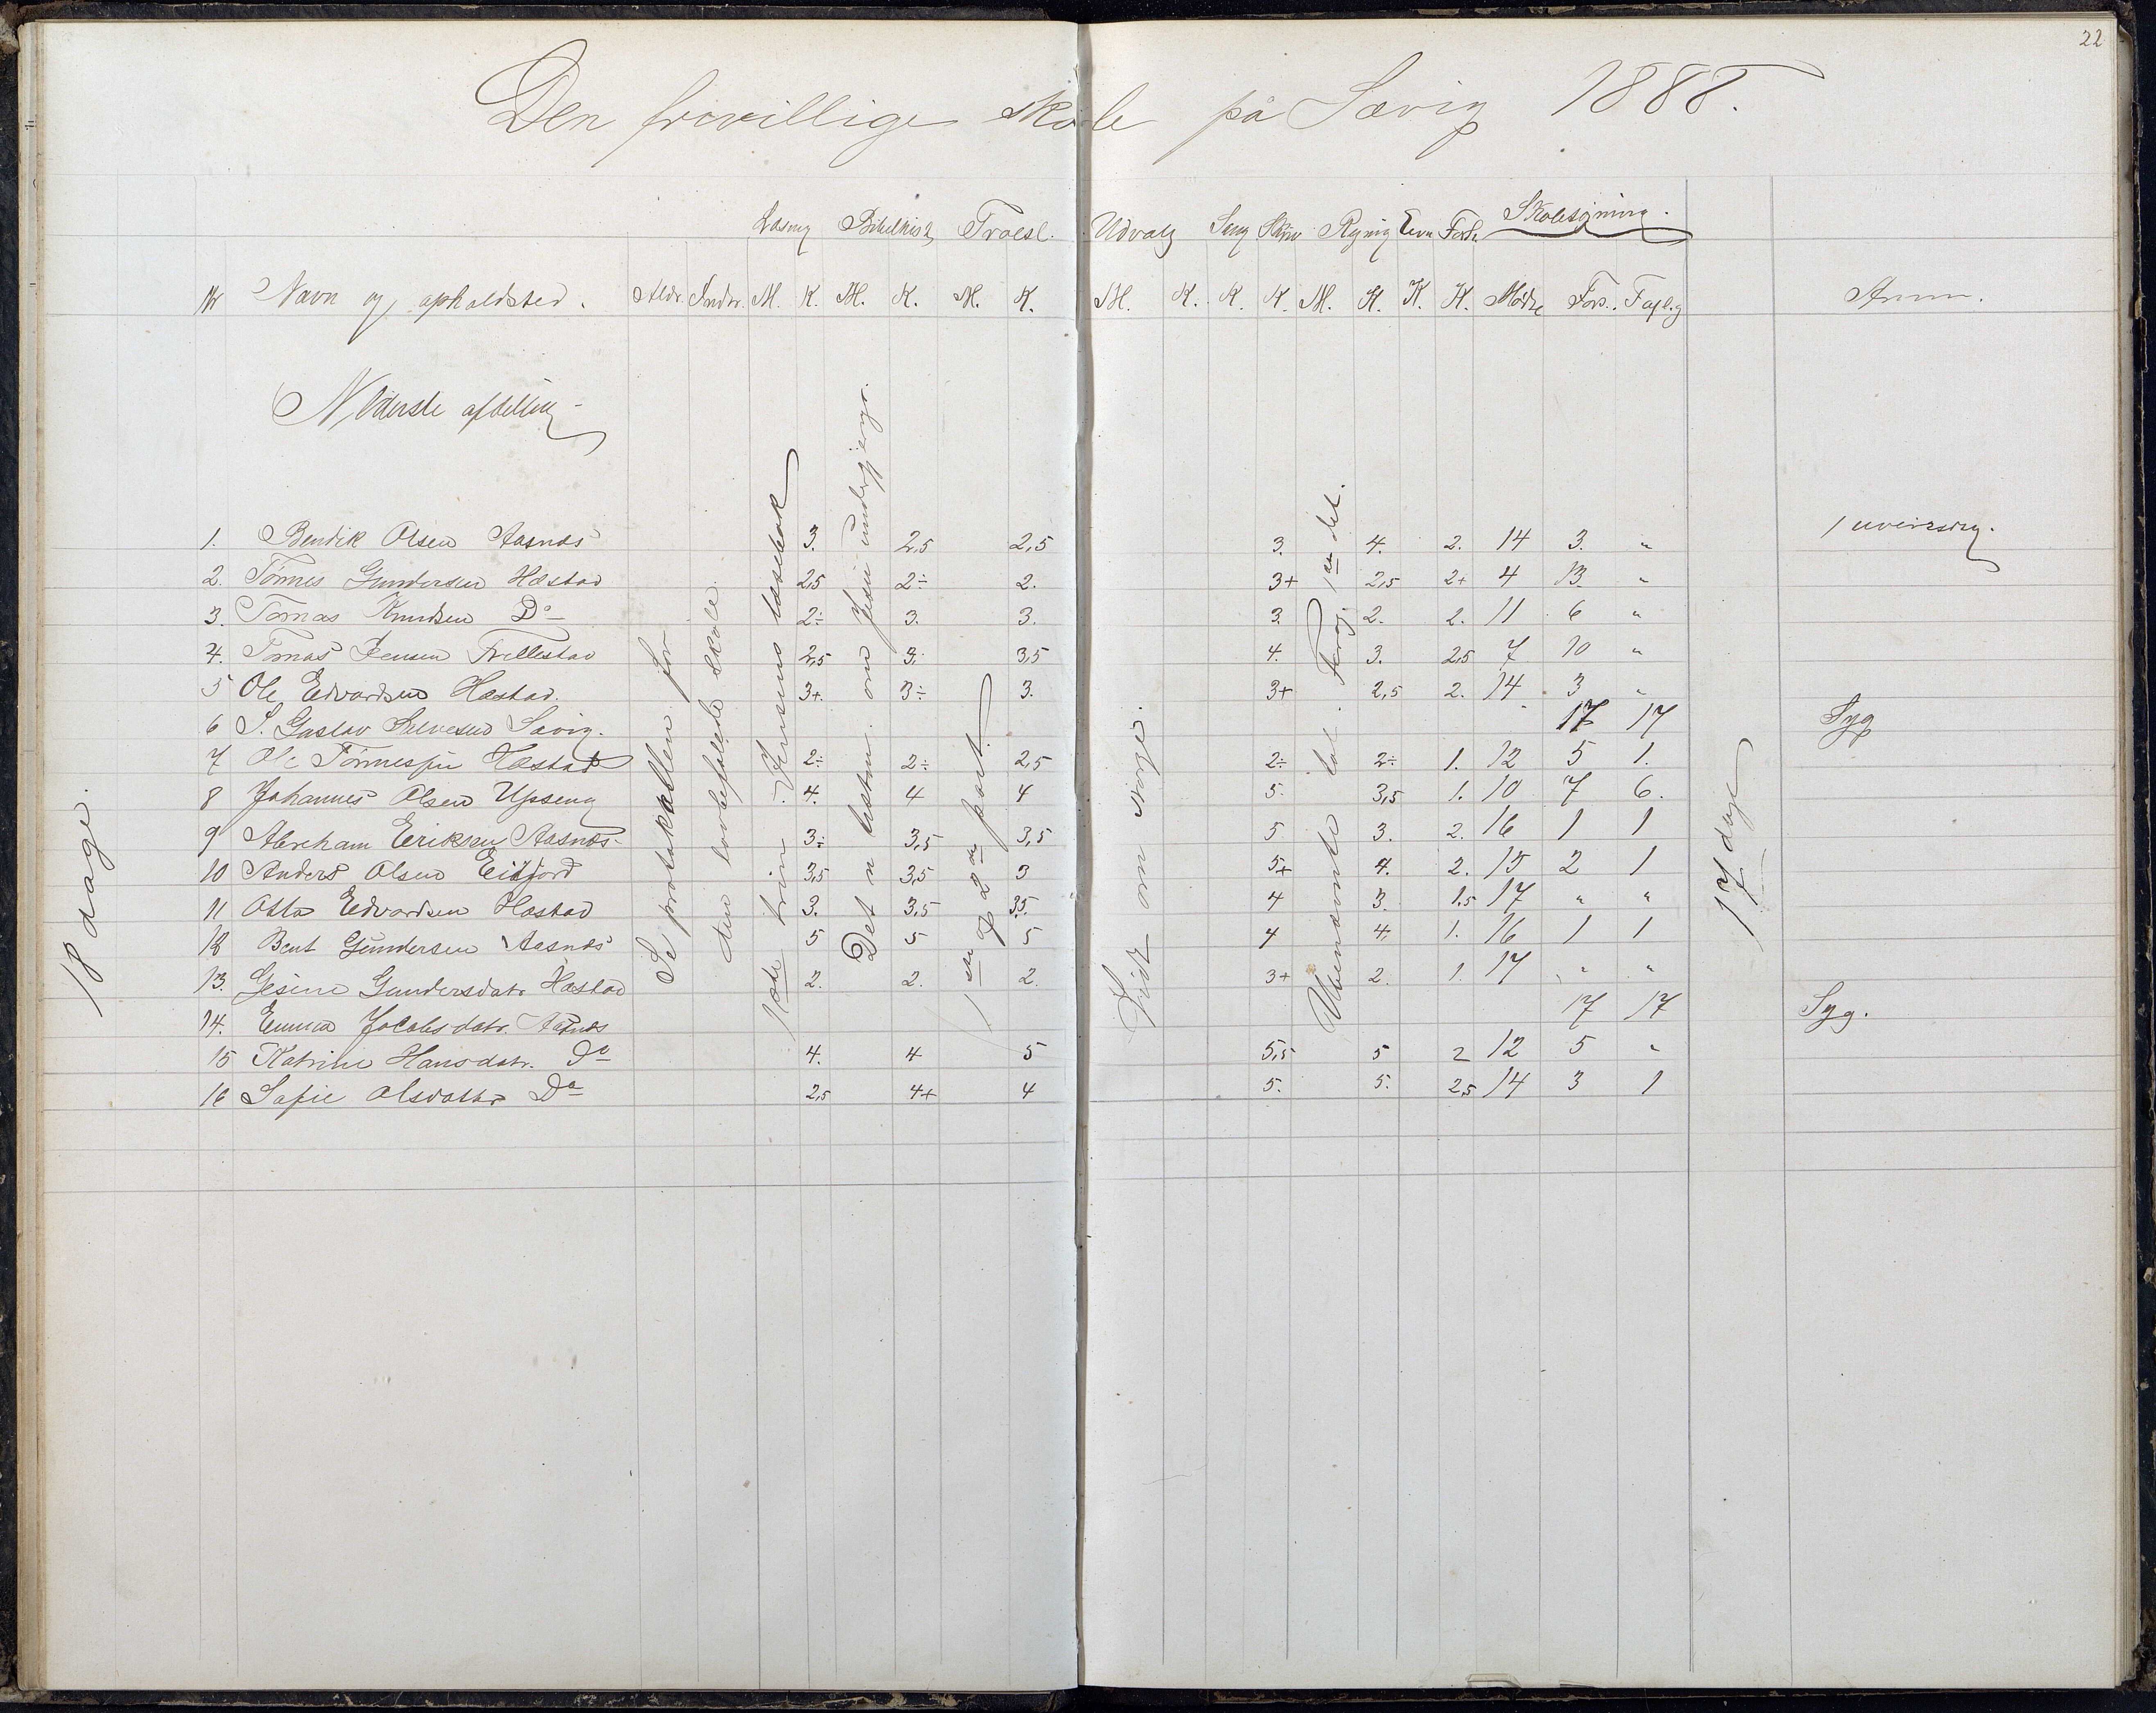 22
Den frivillige skole på Sævig 1888.
Læsning Bibelhist. Troesl. Udvalg Sang Skriv Regnig Evn Forh. Skolesøgning.
Nr Navn og opholdsted. Aldr. Indtr. M. K. M. K. M. K. M. K. K. K. M. K. K. K. Mødte Fors. Anm.
Nederste afdeling
18 dage.
Se protokollen for den lovbefalede skole.
1ste trin. Jensens læsebok
Det n. testam. om Jesu undergjerge.
1ste og 2den part.
Lidt om Norge.
Ubenævnte tal. Terøj. 1ste del.
17 dage
1. Bendik Olsen Aasnæs 3. 2,5 2,5 3. 4. 2. 14 3. " 1 uveirsdag.
2. Tönnes Gundersen Hæstad 2,5 2÷ 2. 3+ 2,5 2+ 4 13 "
3. Tomas Knudsen Do 2÷ 3. 3. 3. 2. 2. 11 6 "
4. Tomas Jensen Trellestad 2,5 3. 3,5 4. 3. 2,5 7 10 "
5 Ole Edvardsen Hæstad. 3+. 3÷ 3. 3+ 2,5 2. 14 3 "
6 S. Gustav Salvesen Sævig. 17 17 Syg
7 Ole Tönnessen Hæstad 2÷ 2÷ 2,5 2÷ 2÷ 1. 12 5 1.
8 Johannes Olsen Upseng 4. 4 4 5. 3,5 1. 10 7 6.
9 Abraham Eriksen Aasnæs 3÷ 3,5 3,5 5 3. 2. 16 1 1
10 Anders Olsen Eitfjord 3,5 3,5 3 5+ 4. 2. 15 2 1
11 Otto Edvardsen Hæstad 3. 3,5 3,5. 4 3. 1,5 17 " "
12 Bent Gundersen Aasnæs 5 5 5 4 4. 1. 16 1 1
13. Gesine Gundersdatr Hæstad 2. 2. 2. 3+ 2. 1. 17 " "
14. Emma Jakobsdatr. Aasnæs 17 17 Syg.
15 Katrine Hansdatr. Do 4. 4 5 5,5 5 2 12 5 "
16 Sofie Olsdatter Do 2,5 4+ 4 5. 5. 2,5 14 3 1